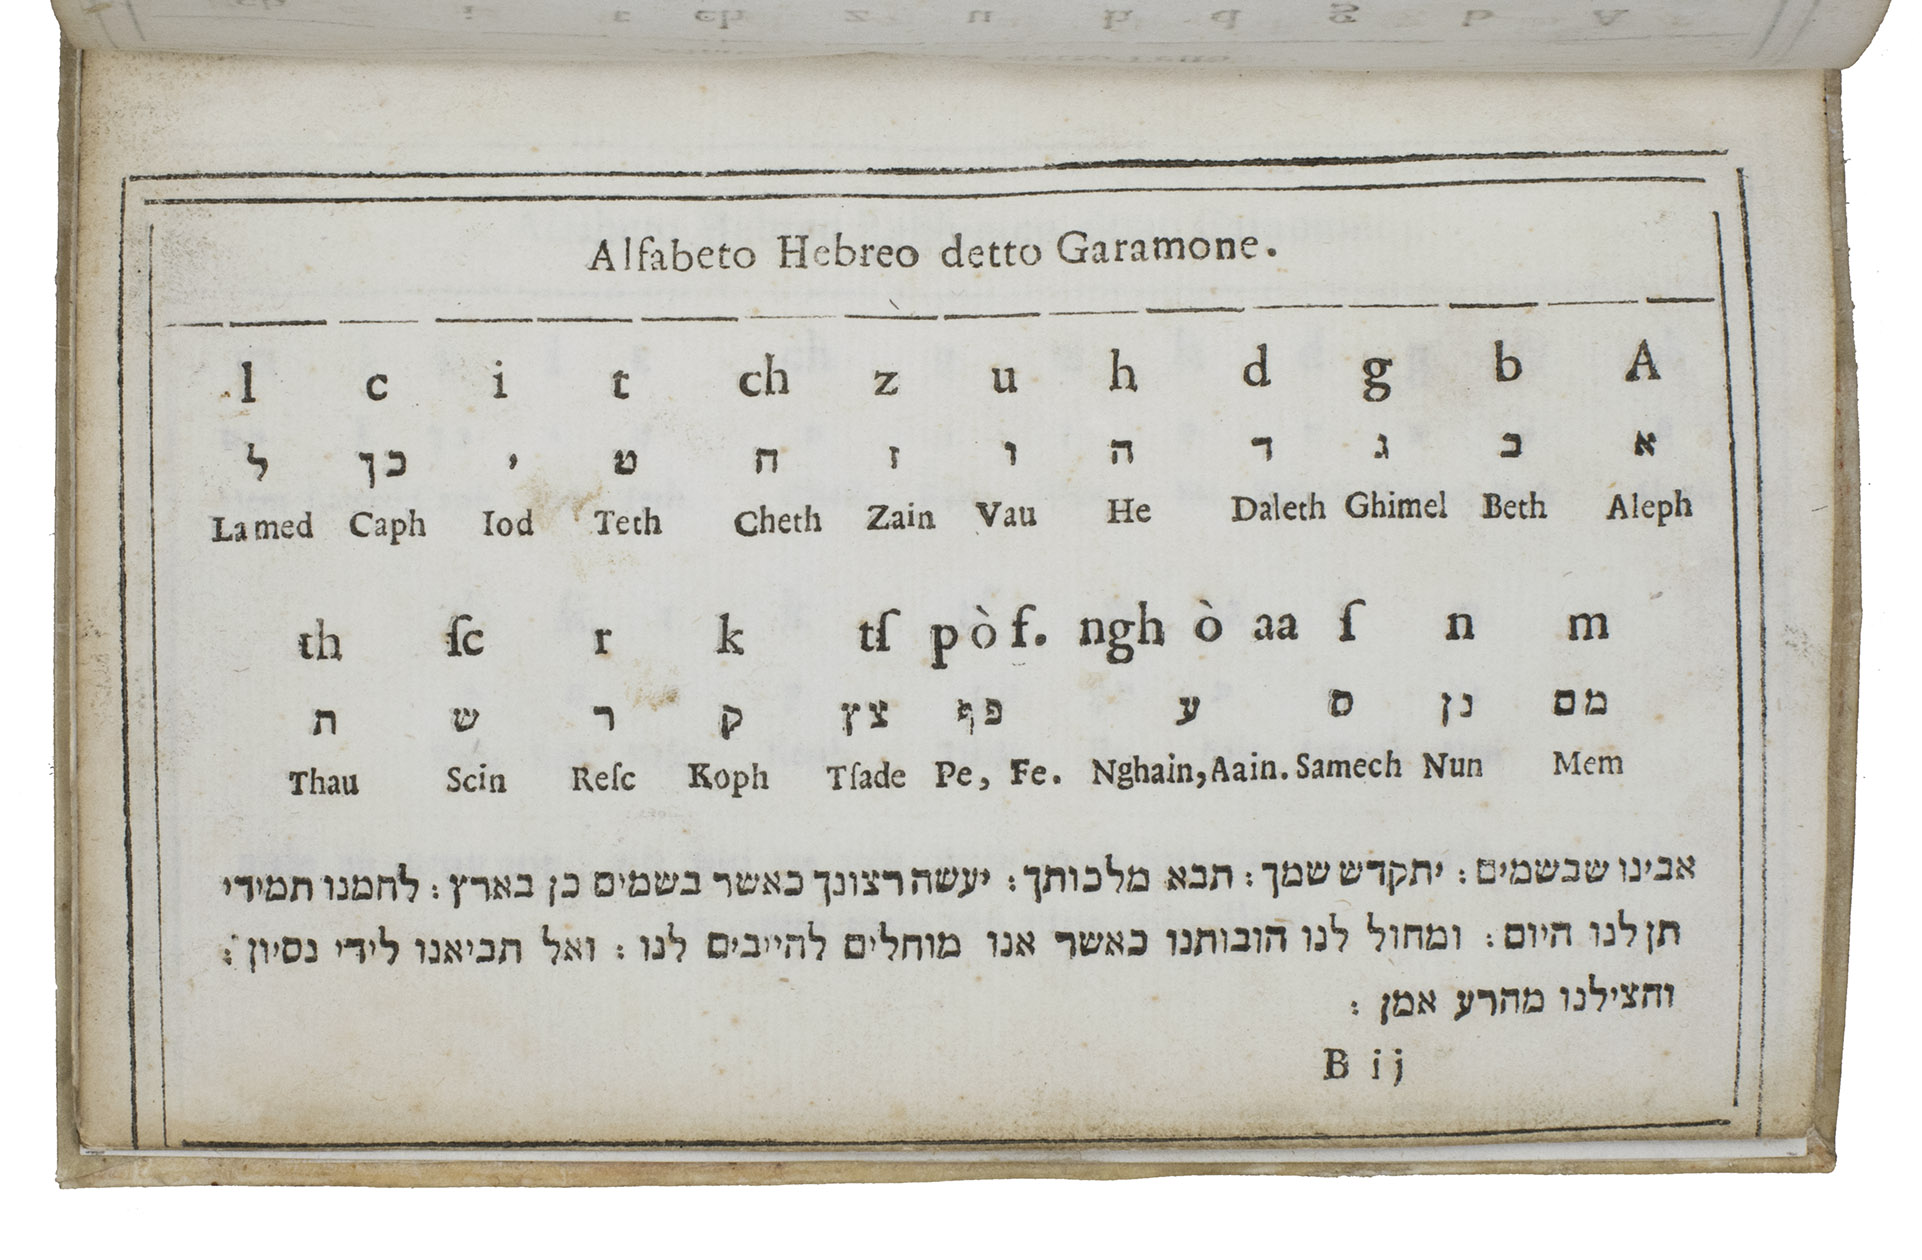 Alfabeto Hebreo detto Garamone.
l c i t ch z u h d g b A
א ב ג ד ה ו ז ח ט י כך ל
Lamed Caph Iod Teth Cheth Zain Vau He Daleth Ghimel Beth Aleph
th ſc r k tſ p ò f. ngh ò aa ſ n m
מם נן ס ע פף צץ ק ר ש ת
Thau Scin Reſc Koph Tſade Pe, Fe. Nghain, Aain. Samech Nun Mem
אבינו שבשמים : יתקדש שמך : תבא מלכותך : יעשה רצונך כאשר בשמים כן בארץ : לחמנו תמידי
תן לנו היום : ומחול לנו הובותנו כאשר אנו מוחלים להייבים לנו : ואל תביאנו לידי נסיון :
והצילנו מהרע אמן :
B ij